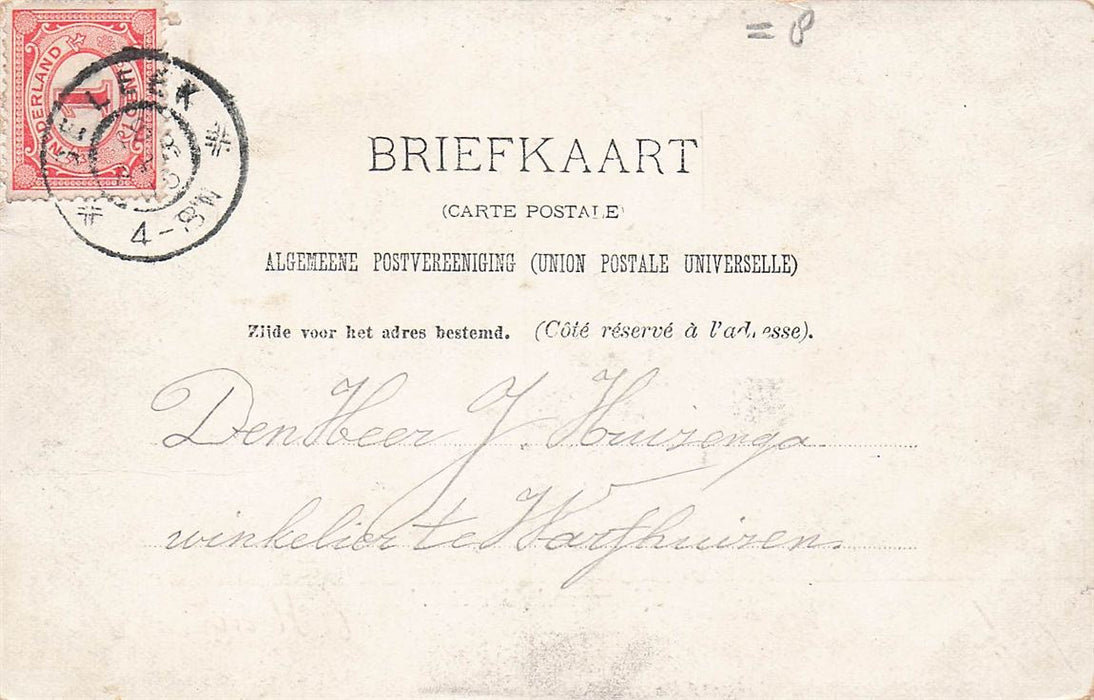 = 8
NEDERLAND
1
DE LEEK
4-8N
BRIEFKAART
(CARTE POSTALE)
ALGEMEENE POSTVEREENIGING (UNION POSTALE UNIVERSELLE)
Zijde voor het adres bestemd. (Côté réservé à l'adresse).
Den Heer J. Huizenga
winkelier te Warfhuizen.